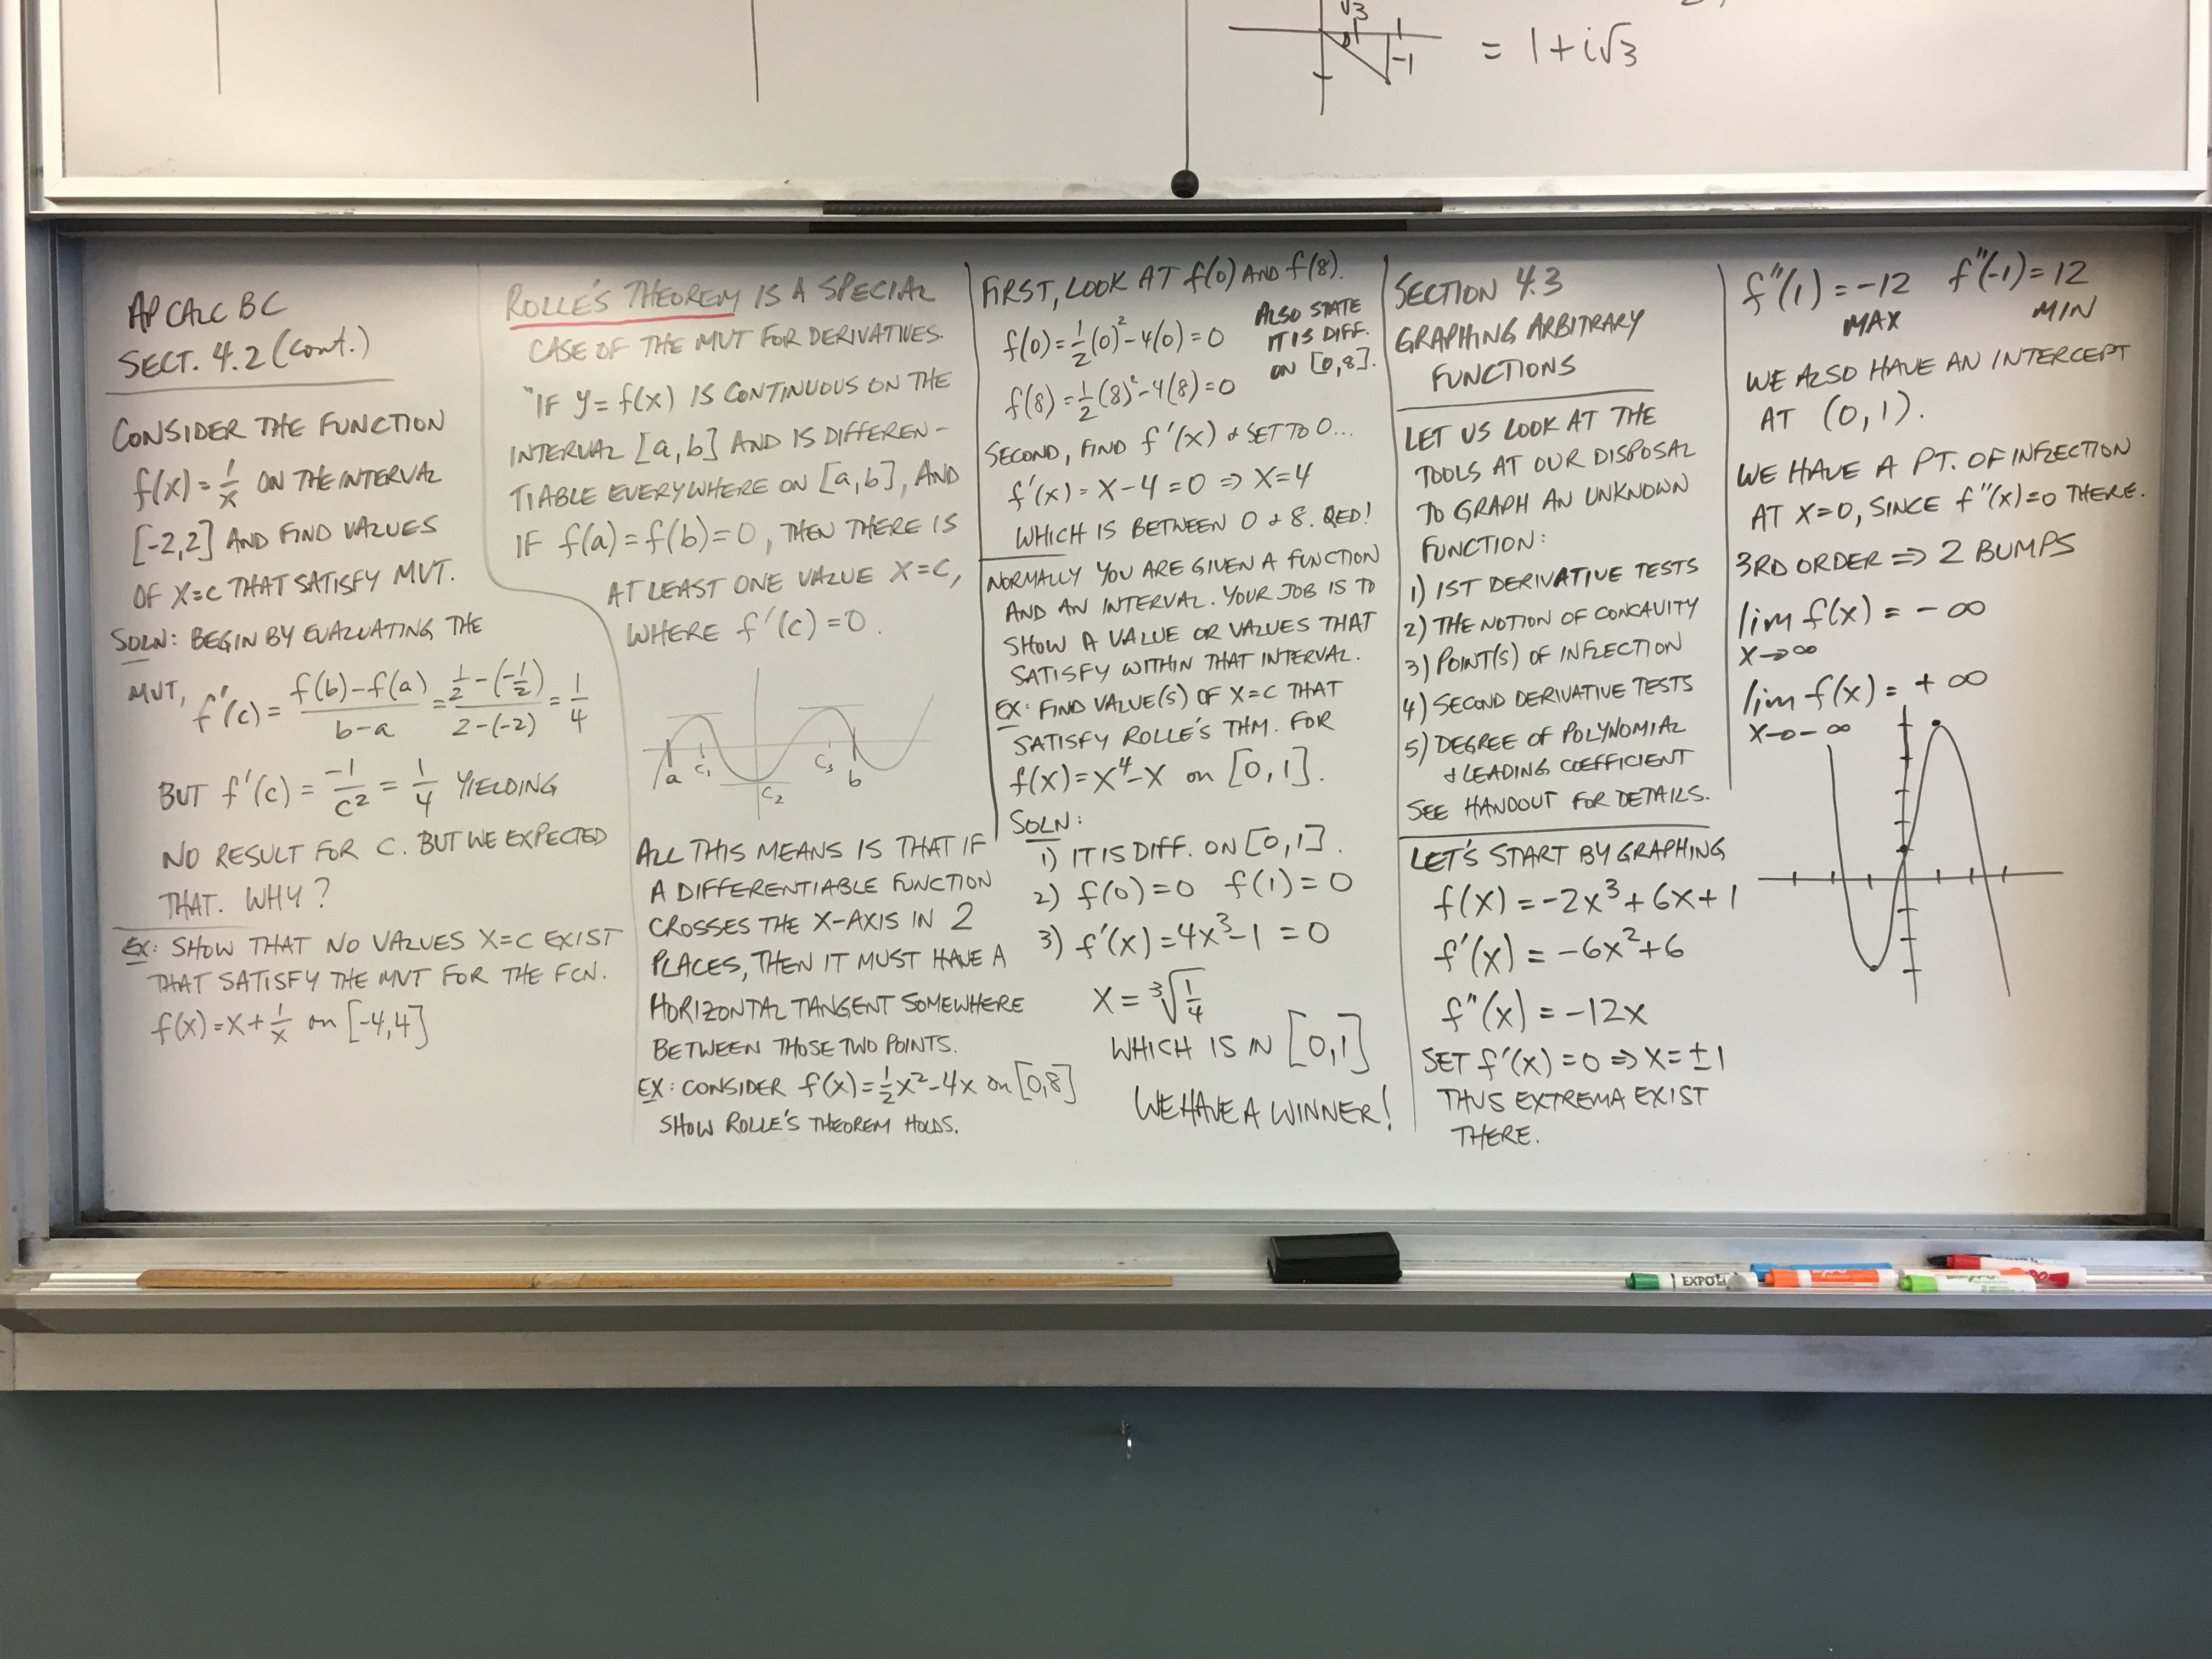 √3
-1
= 1+i√3
AP CALC BC
SECT. 4.2 (CONT.)
CONSIDER THE FUNCTION
f(x) = 1/x ON THE INTERVAL
[-2,2] AND FIND VALUES
OF X=C THAT SATISFY MVT.
SOLN: BEGIN BY EVALUATING THE
MVT, f'(c) = f(b)-f(a) / b-a = 1/2-(-1/2) / 2-(-2) = 1/4
BUT f'(c) = -1/c² = 1/4 YIELDING
NO RESULT FOR C. BUT WE EXPECTED
THAT. WHY?
EX: SHOW THAT NO VALUES X=C EXIST
THAT SATISFY THE MVT FOR THE FCN.
f(x)=x+1/x on [-4,4]
ROLLE'S THEOREM IS A SPECIAL
CASE OF THE MVT FOR DERIVATIVES.
"IF y=f(x) IS CONTINUOUS ON THE
INTERVAL [a,b] AND IS DIFFEREN-
TIABLE EVERYWHERE ON [a,b], AND
IF f(a)=f(b)=0, THEN THERE IS
AT LEAST ONE VALUE X=C,
WHERE f'(c)=0.
a c₁ c₂ c₃ b
ALL THIS MEANS IS THAT IF
A DIFFERENTIABLE FUNCTION
CROSSES THE X-AXIS IN 2
PLACES, THEN IT MUST HAVE A
HORIZONTAL TANGENT SOMEWHERE
BETWEEN THOSE TWO POINTS.
EX: CONSIDER f(x)=1/2x²-4x on [0,8]
SHOW ROLLE'S THEOREM HOLDS.
FIRST, LOOK AT f(0) AND f(8).
f(0)=1/2(0)²-4(0)=0
f(8)=1/2(8)²-4(8)=0
ALSO STATE
IT IS DIFF.
ON [0,8].
SECOND, FIND f'(x) & SET TO 0...
f'(x)=x-4=0 ⇒ X=4
WHICH IS BETWEEN 0 & 8. QED!
NORMALLY YOU ARE GIVEN A FUNCTION
AND AN INTERVAL. YOUR JOB IS TO
SHOW A VALUE OR VALUES THAT
SATISFY WITHIN THAT INTERVAL.
EX: FIND VALUE(S) OF X=C THAT
SATISFY ROLLE'S THM. FOR
f(x)=x⁴-x on [0,1].
SOLN:
1) IT IS DIFF. ON [0,1].
2) f(0)=0 f(1)=0
3) f'(x)=4x³-1=0
X=∛1/4
WHICH IS IN [0,1]
WE HAVE A WINNER!
SECTION 4.3
GRAPHING ARBITRARY
FUNCTIONS
LET US LOOK AT THE
TOOLS AT OUR DISPOSAL
TO GRAPH AN UNKNOWN
FUNCTION:
1) 1ST DERIVATIVE TESTS
2) THE NOTION OF CONCAVITY
3) POINT(S) OF INFLECTION
4) SECOND DERIVATIVE TESTS
5) DEGREE OF POLYNOMIAL
& LEADING COEFFICIENT
SEE HANDOUT FOR DETAILS.
LET'S START BY GRAPHING
f(x)=-2x³+6x+1
f'(x)=-6x²+6
f"(x)=-12x
SET f'(x)=0 ⇒ X=±1
THUS EXTREMA EXIST
THERE.
f"(1)=-12 f"(-1)=12
MAX MIN
WE ALSO HAVE AN INTERCEPT
AT (0,1).
WE HAVE A PT. OF INFLECTION
AT X=0, SINCE f"(x)=0 THERE.
3RD ORDER ⇒ 2 BUMPS
lim f(x) = -∞
x→∞
lim f(x) = +∞
x→-∞
EXPO